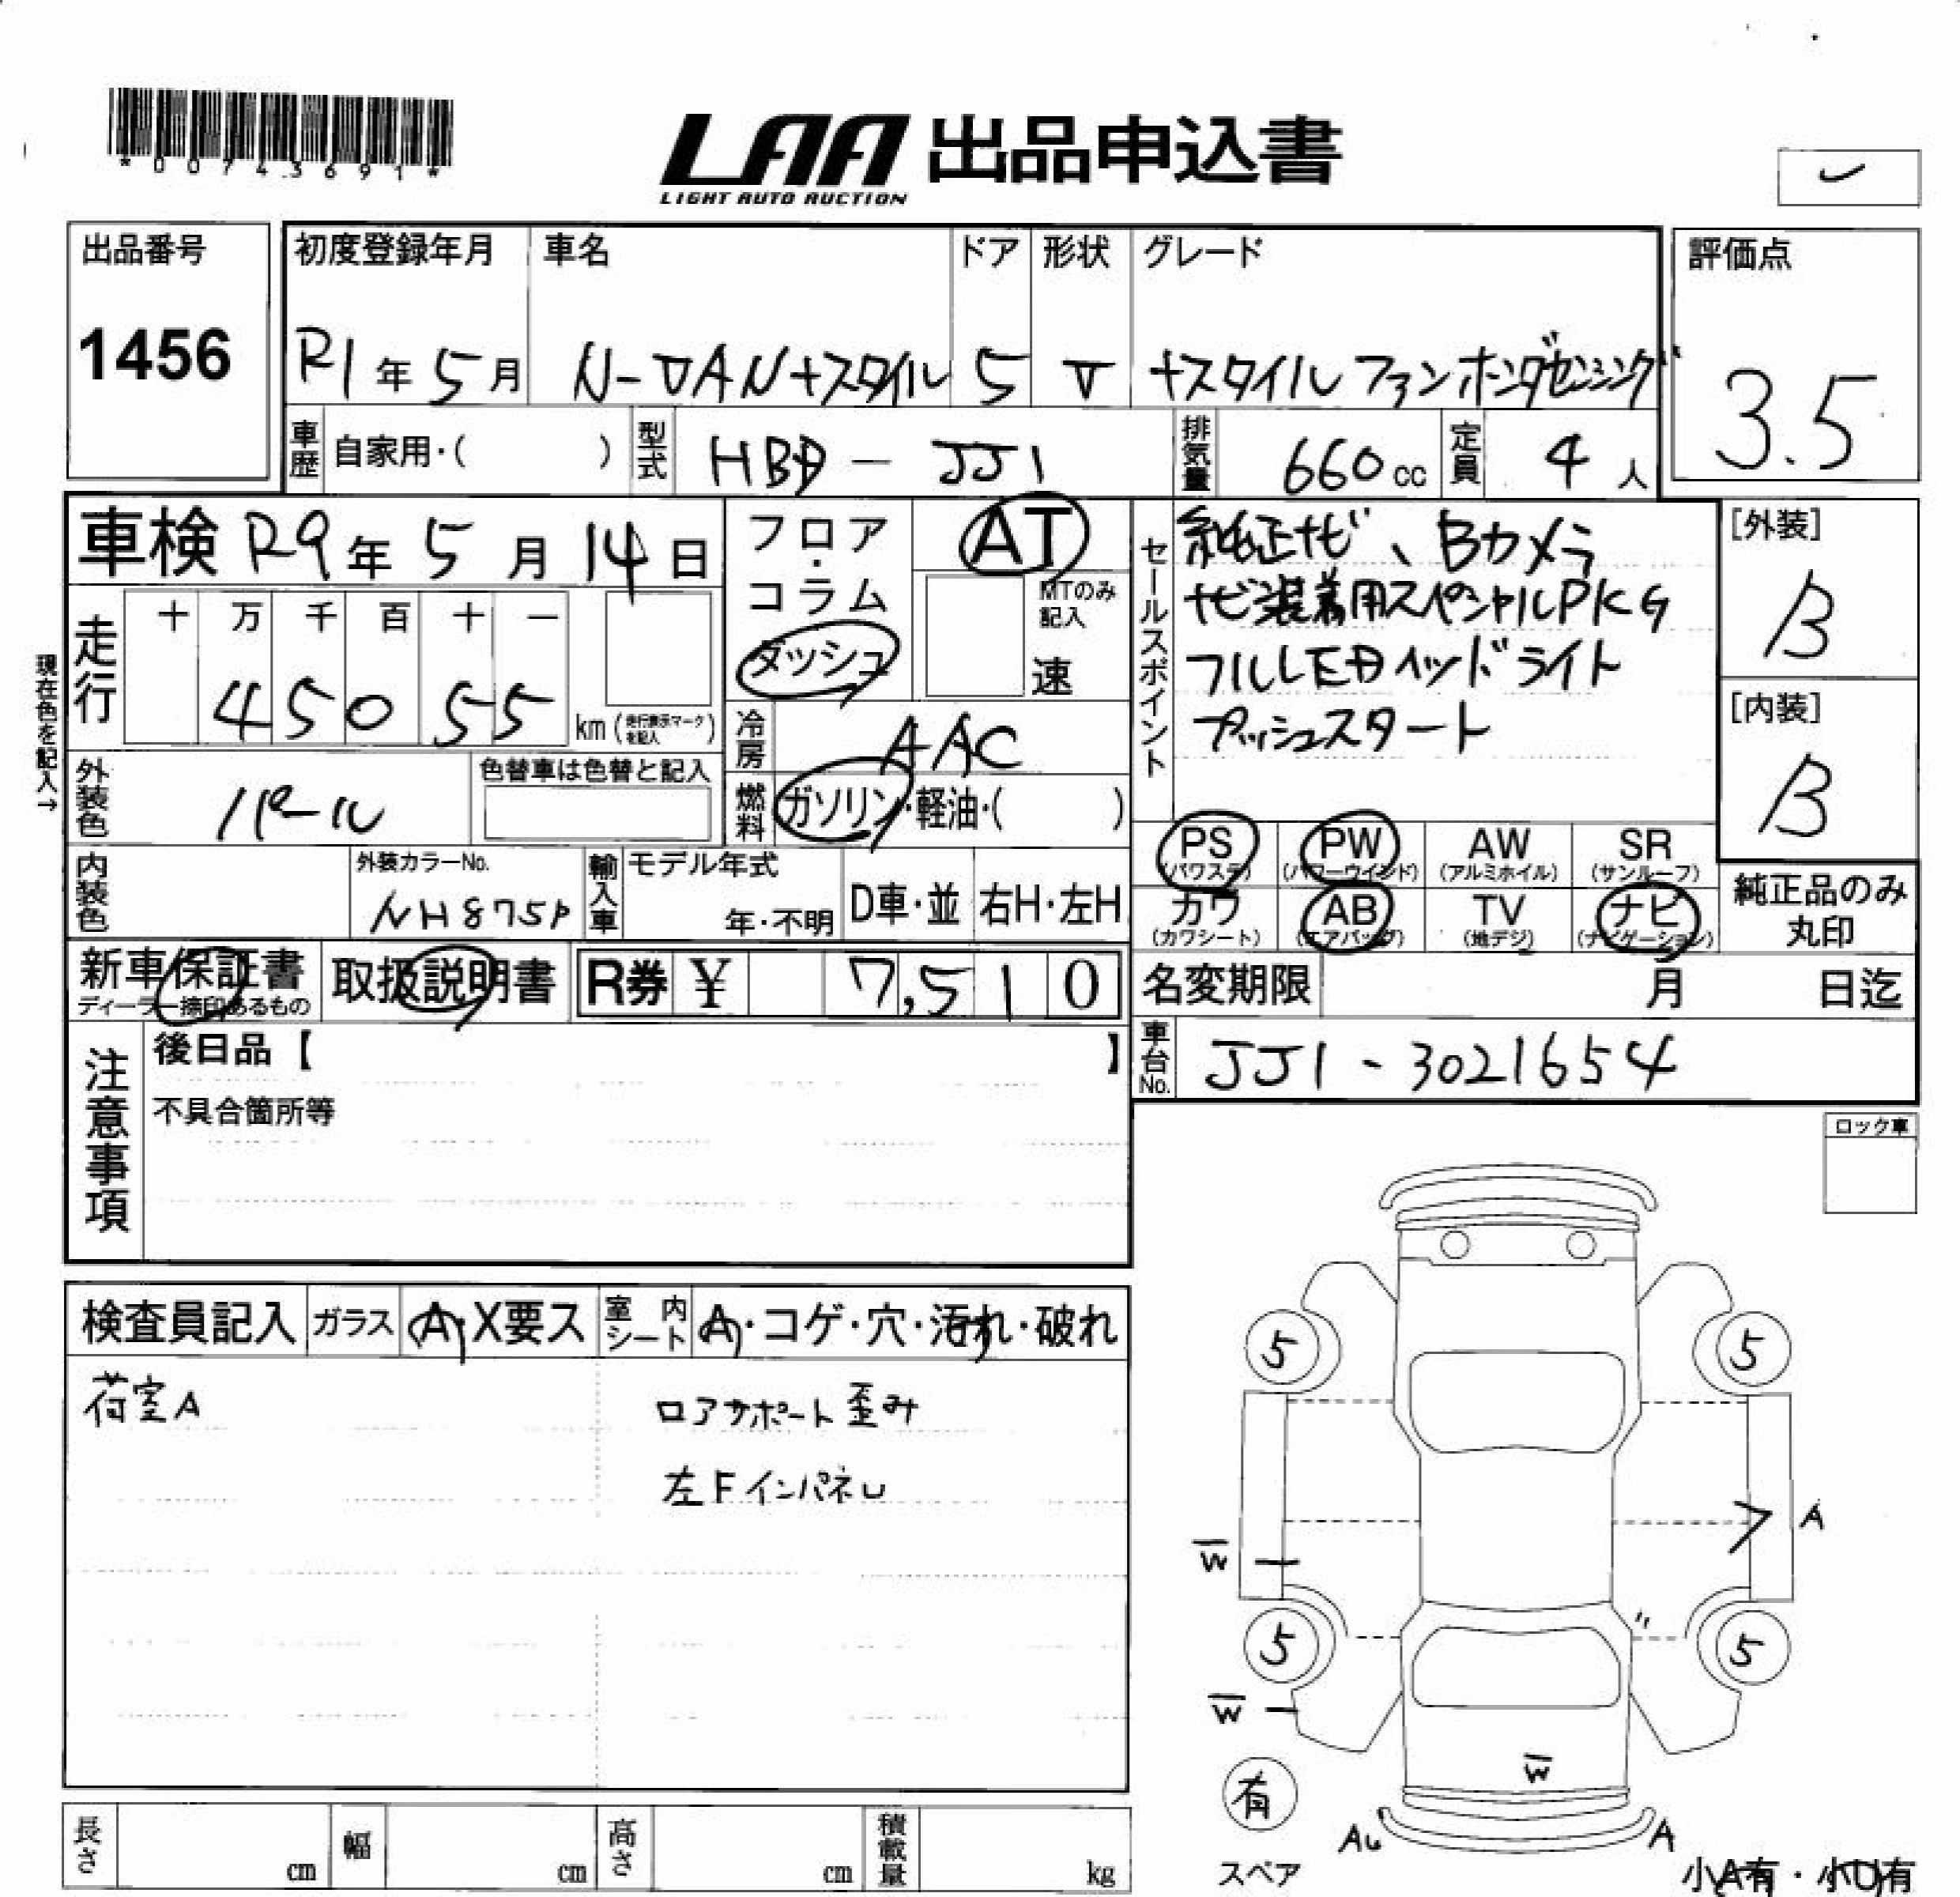 *00743691*
LAA 出品申込書
LIGHT AUTO AUCTION
出品番号
1456
初度登録年月 車名 ドア 形状 グレード
R1年5月 N-VAN+スタイル 5 V +スタイル ファン ホンダセンシング
評価点
3.5
車歴 自家用・( ) 型式 HBD-JJ1 排気量 660cc 定員 4人
車検 R9年5月14日
フロア・コラム
ダッシュ
AT
MTのみ記入
速
現在色を記入→
走行 十 万 千 百 十 一
45055 km (走行表示マークを記入)
冷房 AAC
燃料 ガソリン・軽油・( )
外装色 パール 色替車は色替と記入
内装色 外装カラーNo. NH875P
輸入車 モデル年式 年・不明 D車・並 右H・左H
セールスポイント
純正ナビ、Bカメラ
ナビ装着用スペシャルPKG
フルLEDヘッドライト
プッシュスタート
[外装]
B
[内装]
B
PS (パワステ) PW (パワーウインド) AW (アルミホイル) SR (サンルーフ)
カワ (カワシート) AB (エアバッグ) TV (地デジ) ナビ (ナビゲーション)
純正品のみ丸印
新車保証書 ディーラー捺印あるもの
取扱説明書
R券 ¥ 7,510
名変期限 月 日迄
車台No. JJ1-3021654
注意事項
後日品【 】
不具合箇所等
ロック車
検査員記入 ガラス A・X要ス 室内シート A・コゲ・穴・汚れ・破れ
荷室A
ロアサポート歪み
左FインパネU
5 5
A
W
5 〃 5
W
W
有
スペア
AU A
小A有・小U有
長さ cm 幅 cm 高さ cm 積載量 kg